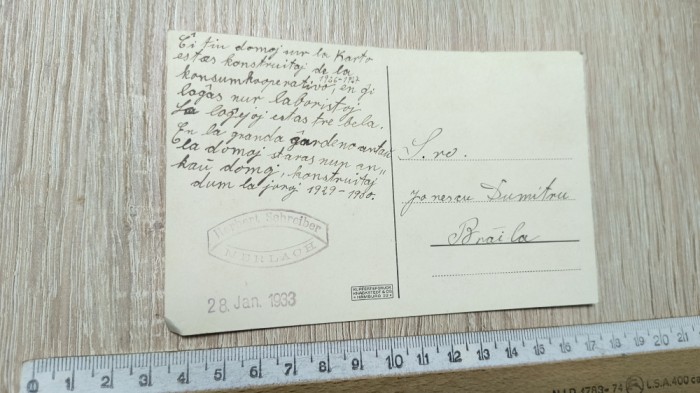 Ĉi tiu domoj sur la Karto
estas konstruitaj de la
konsumkooperativo, en ĝi
1926-1927
loĝas nur laboristoj
La loĝejoj estas tre bela.
En la granda ĝardeno antaŭ
la domoj staras nun an-
kaŭ domoj, konstruitaj
dum la jaroj 1929-1930.
Herbert Schreiber
28. Jan. 1933
S. ro.
Jonescu Dumitru
Brăila
KUPFERTIEFDRUCK
HAMBURG
0 1 2 3 4 5 6 7 8 9 10 11 12 13 14 15 16 17 18 19 20 21
1783-74 L.S.A. 400